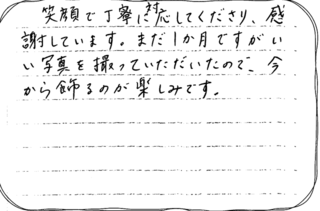 笑顔で丁寧に対応してくださり、感
謝しています。まだ1か月ですがい
い写真を撮っていただいたので、今
から飾るのが楽しみです。